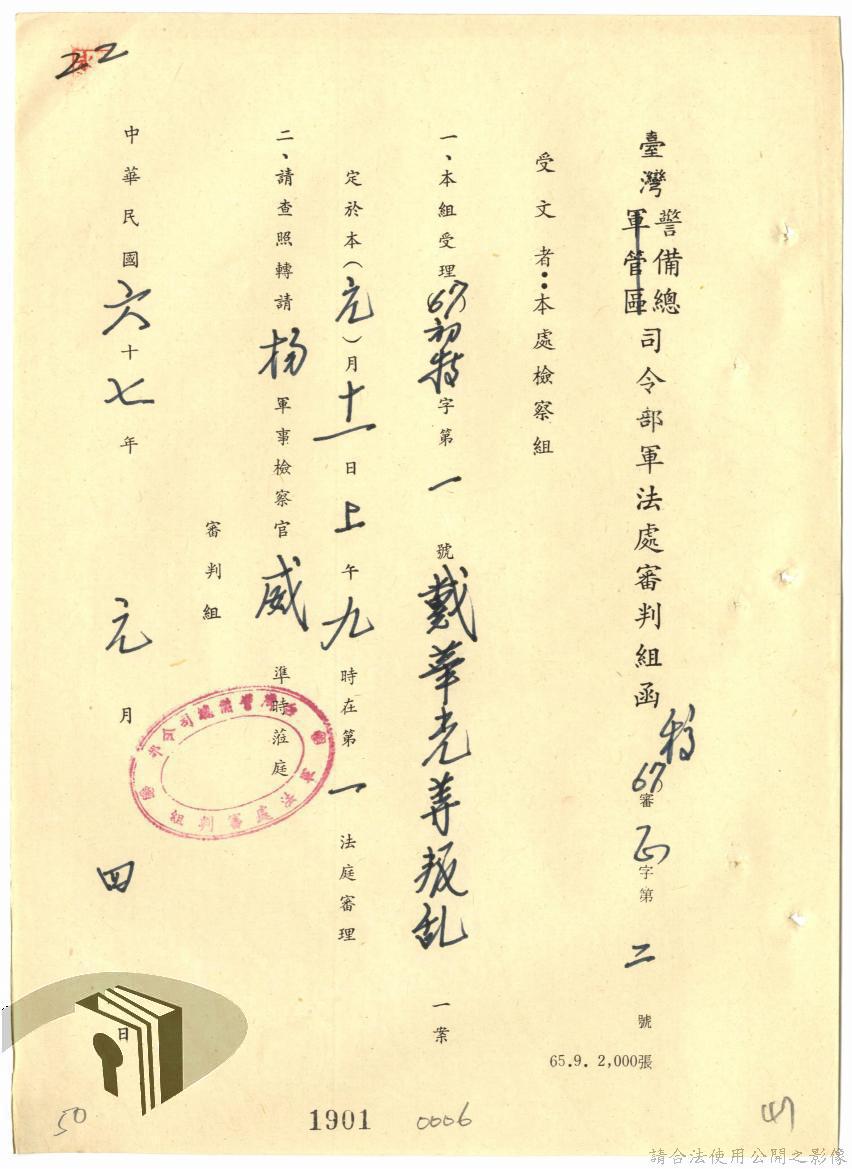 22
臺灣警備總軍管區司令部軍法處審判組函
特
67審正字第二號
65.9. 2,000張
受文者：本處檢察組
一、本組受理67初特字第一號戴華光等叛乱一案
定於本（元）月十一日上午九時在第一法庭審理
二、請查照轉請楊軍事檢察官威準時蒞庭
審判組
臺灣警備總司令部
軍法處審判組
中華民國六十七年元月四日
50
1901
0006
47
請合法使用公開之影像